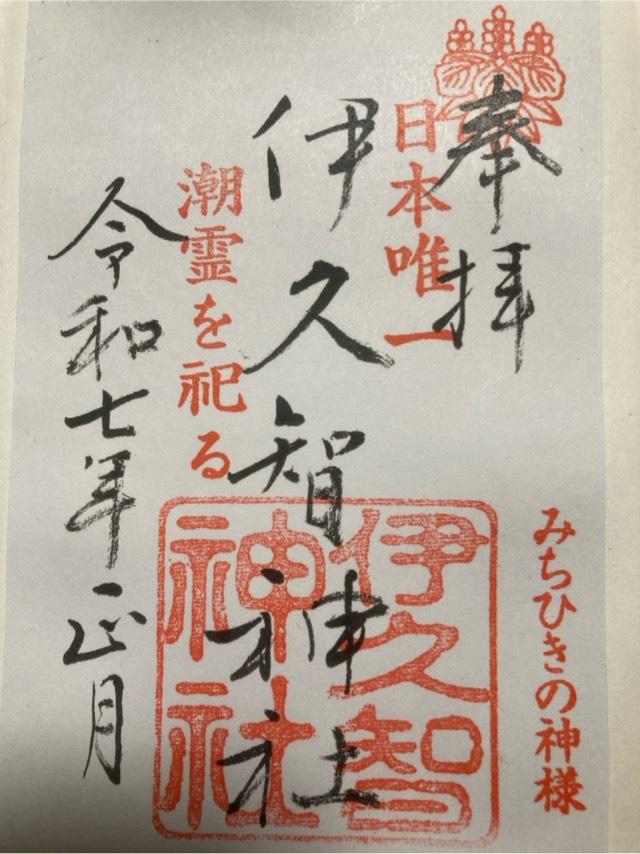 奉拝
日本唯一
伊久智神社
潮霊を祀る
令和七年正月
みちひきの神様
伊久智
神社